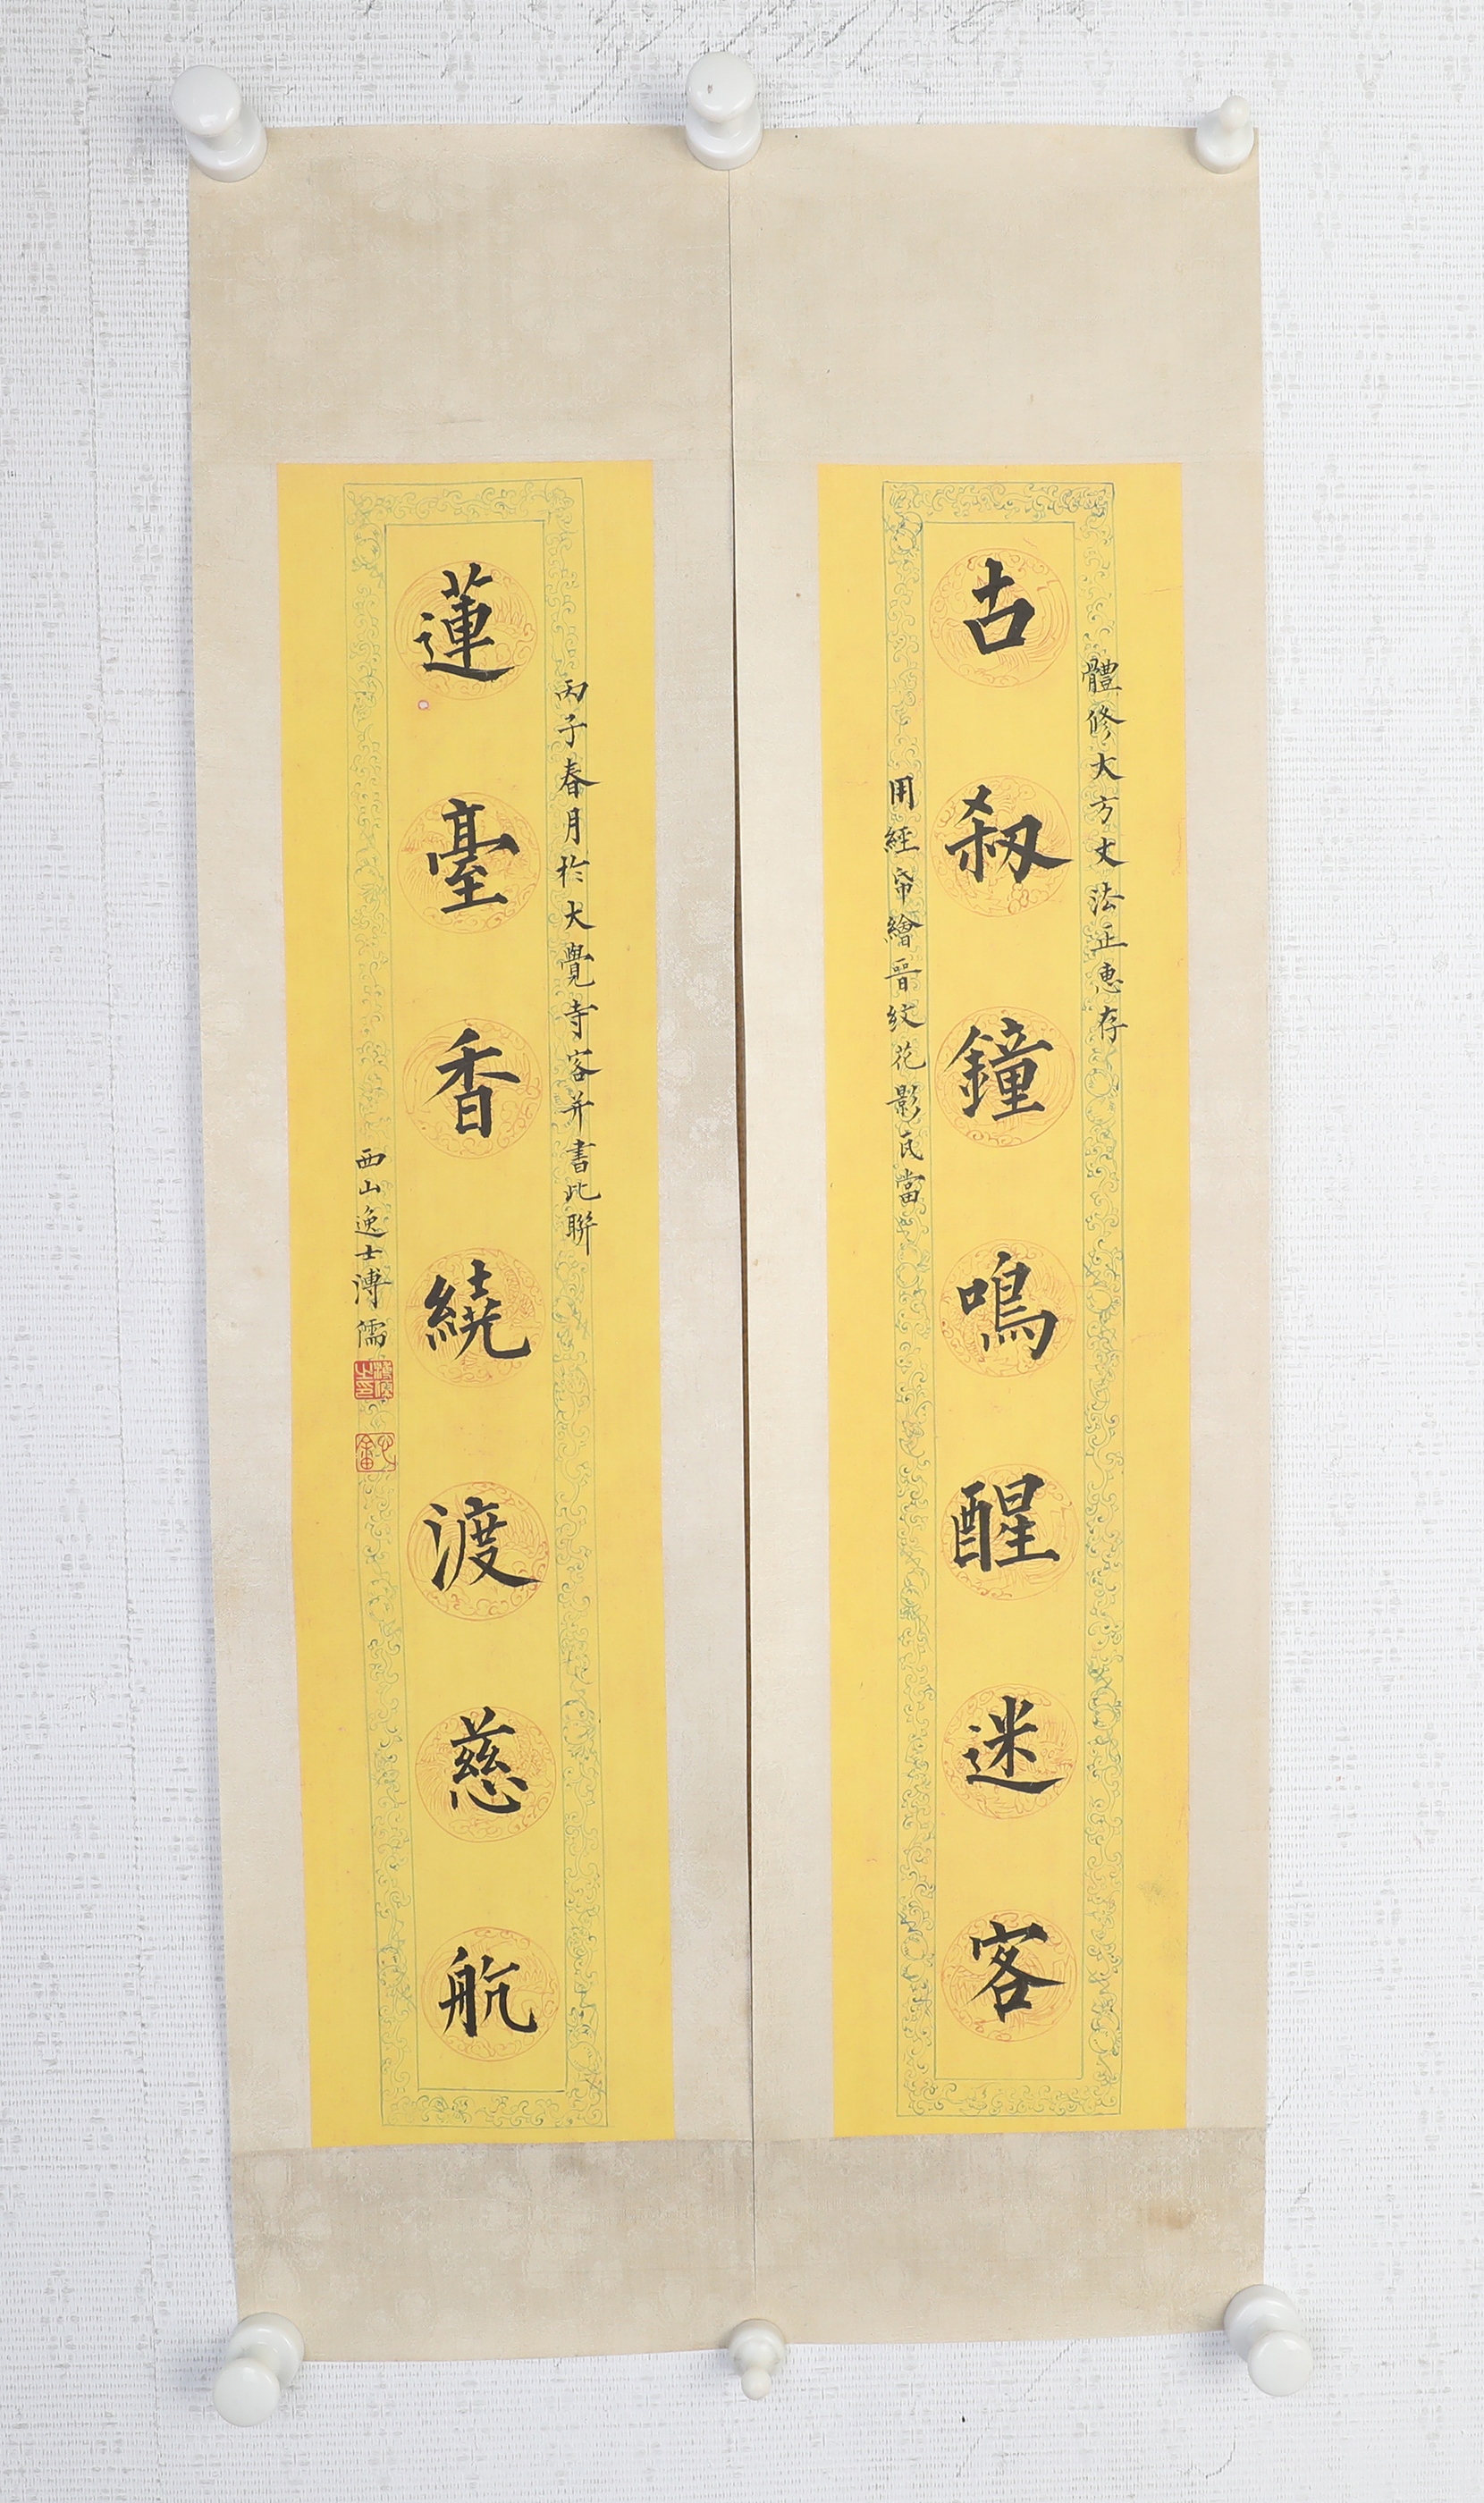 體修大方丈法正惠存
古剎鐘鳴醒迷客
用經帋繪晉紋花影瓦當
丙子春月於大覺寺客并書此聯
蓮臺香繞渡慈航
西山逸士溥儒
溥儒之印
心畬